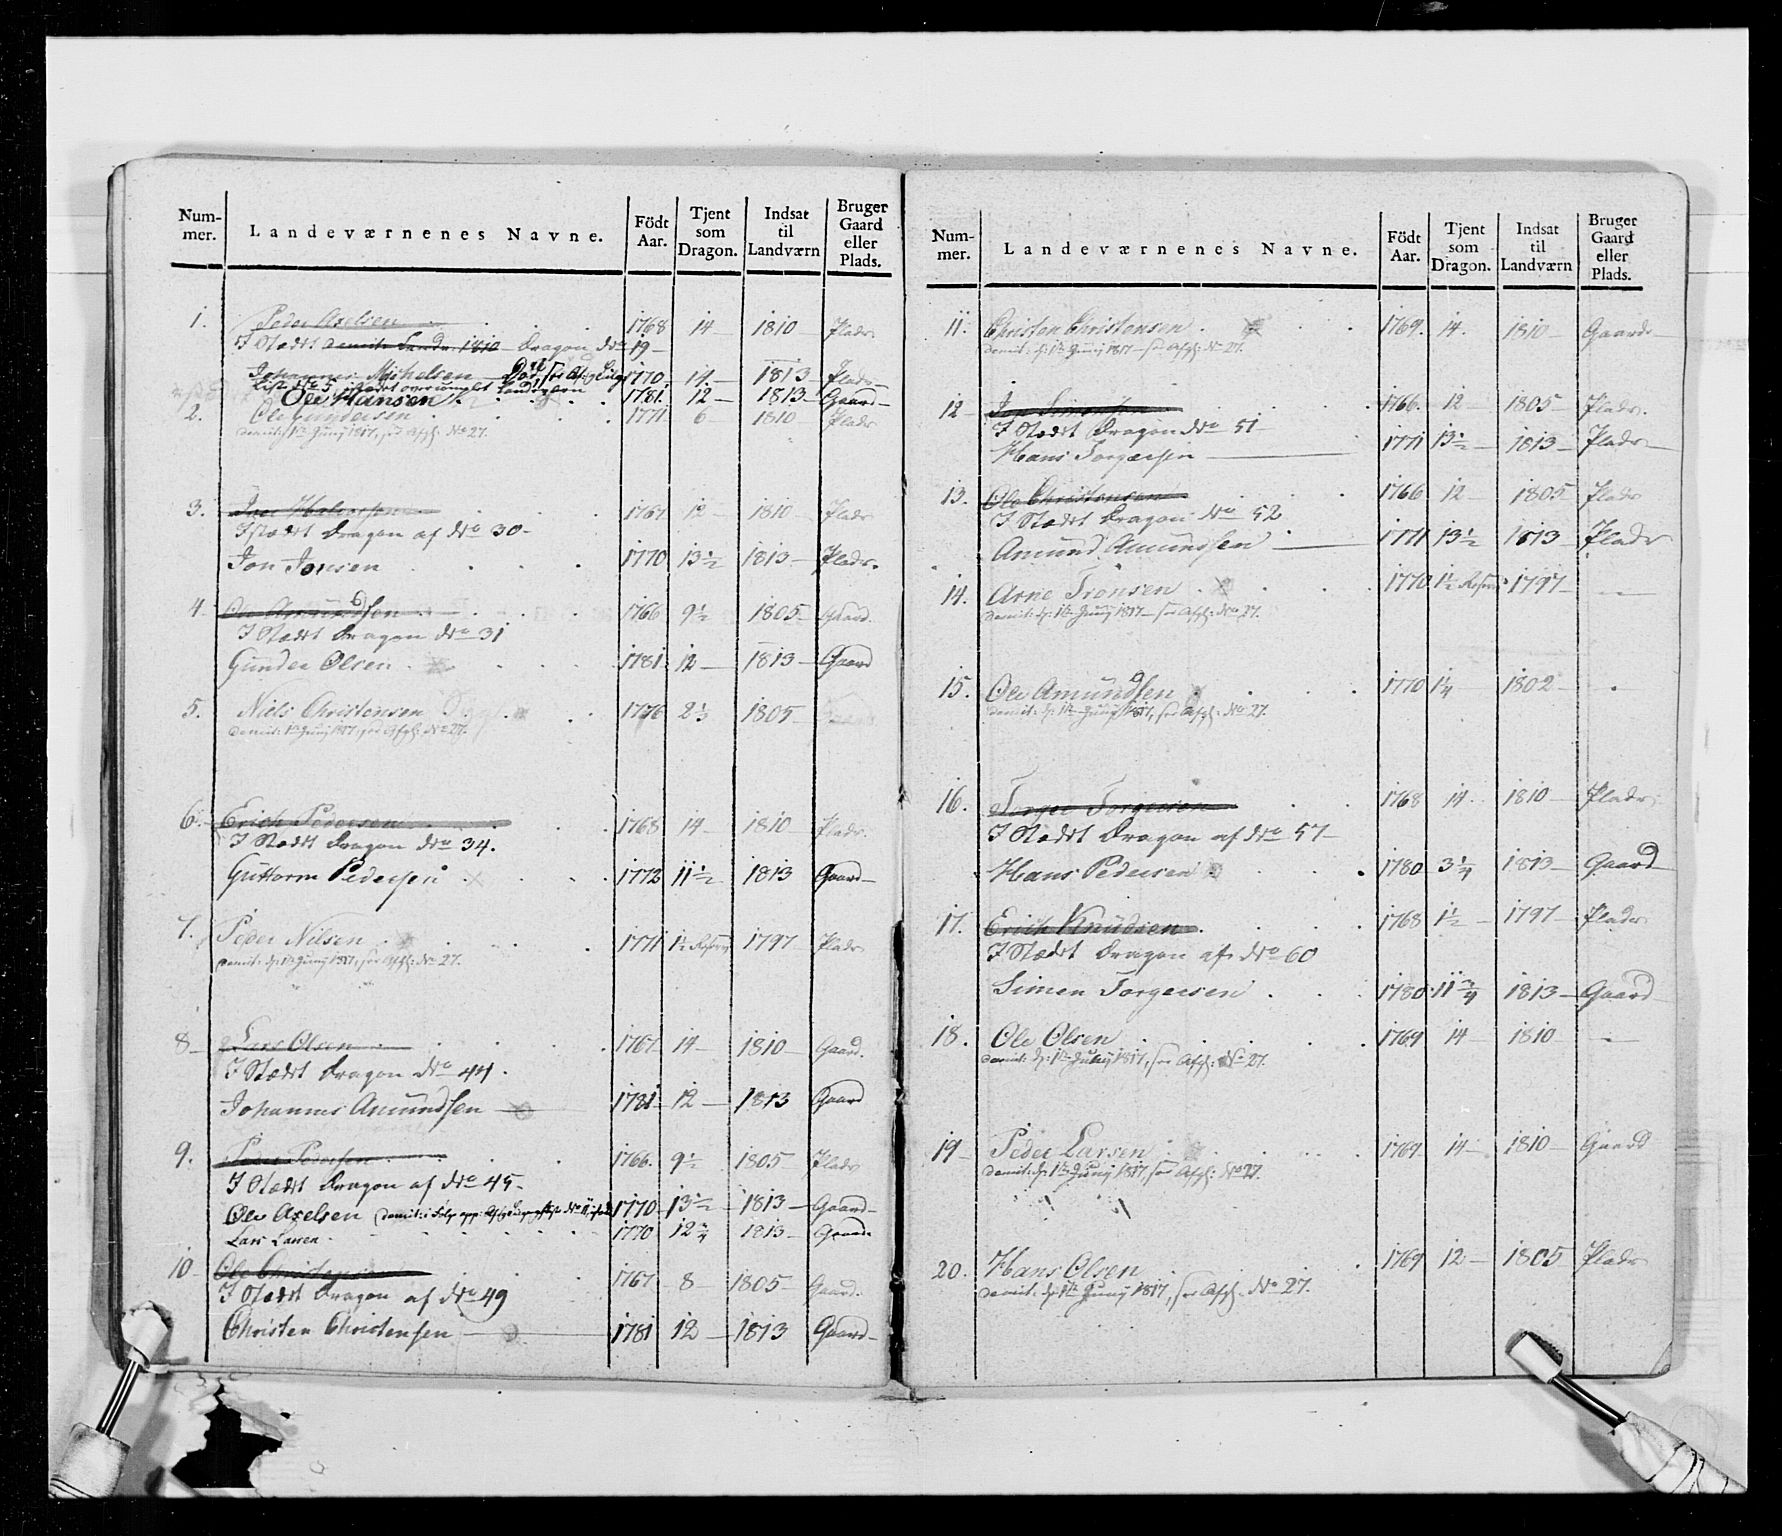 Num-
mer.
Landeværnenes Navne.
Födt
Aar.
Tjent
som
Dragon.
Indsat
til
Landværn
Bruger
Gaard
eller
Plads.
1. Peder Axelsen 1768 14 1810 Plads
I Stædet Dragon No 19
Johannes Michelsen Död 1770 14 1813 Plads
Ole Hansen 1781 12 1813 Gaard
2. Ole 1771 6 1810 Plads
demit: 1te Junij 1817, No 27.
3. 1767 12 1810 Plads
I Stædet Dragon af No 30
Jon Jonsen 1770 13½ 1813 Plads
4. Ole Amundsen 1766 9½ 1805 Gaard
I Stædet Dragon No 31
Gunder Olsen 1781 12 1813 Gaard
5. Niels Christensen 1776 2⅓ 1805
demit: 1te Junij 1817, No 27.
6. Erich Pedersen 1768 14 1810 Plads
I Stædet Dragon No 34.
Guttorm Pedersen 1772 11½ 1813 Gaard
7. Peder Nilsen 1771 1½ Reserv 1797 Plads
demit: d: 1te Junij 1817, No 27.
8 Lars Olsen 1767 14 1810 Gaard
I Stædet Dragon No 44.
Johannes Amundsen 1781 12 1813 Gaard
9. Peder Pedersen 1766 9½ 1805 Plads
I Stædet Dragon af No 45
Ole Axelsen 1770 13½ 1813 Gaard
Lars Larsen 1770 12¾ 1813 Gaard
10 Ole Christensen 1767 8 1805 Gaard
I Stædet Dragon af No 49
Christen Christensen 1781 12 1813 Gaard
Num-
mer.
Landeværnenes Navne.
Födt
Aar.
Tjent
som
Dragon.
Indsat
til
Landværn
Bruger
Gaard
eller
Plads.
11. Christen Christensen 1769 14 1810 Gaard
demit: d: 1te Junij 1817 No 27.
12 Jon Simensen 1766 12 1805 Plads
I Stædet Dragon No 51
Hans Torgersen 1771 13½ 1813 Plads
13. Ole Christensen 1766 12 1805 Plads
I Stædet Dragon No 52
Amund Amundsen 1771 13½ 1813 Plads
14. Arne Tronsen 1770 1½ Reserv 1797
demit: d: 1te Junij 1817 No 27.
15. Ole Amundsen 1770 1¼ 1802
demit: d: 1te Junij 1817, No 27.
16. Torger Torgersen 1768 14 1810 Plads
I Stædet Dragon af No 57
Hans Pedersen 1780 3¼ 1813 Gaard
17. Erich Knudsen 1768 1½ 1797 Plads
I Stædet Dragon af No 60
Simen Torgersen 1780 11¾ 1813 Gaard
18. Ole Olsen 1769 14 1810
demit: d: 1te Junij 1817, No 27.
19 Peder Larsen 1769 14 1810 Gaard
demit: d: 1te Junij 1817, No 27.
20. Hans Olsen 1769 12 1805 Plads
demit: d: 1te Junij 1817, No 27.